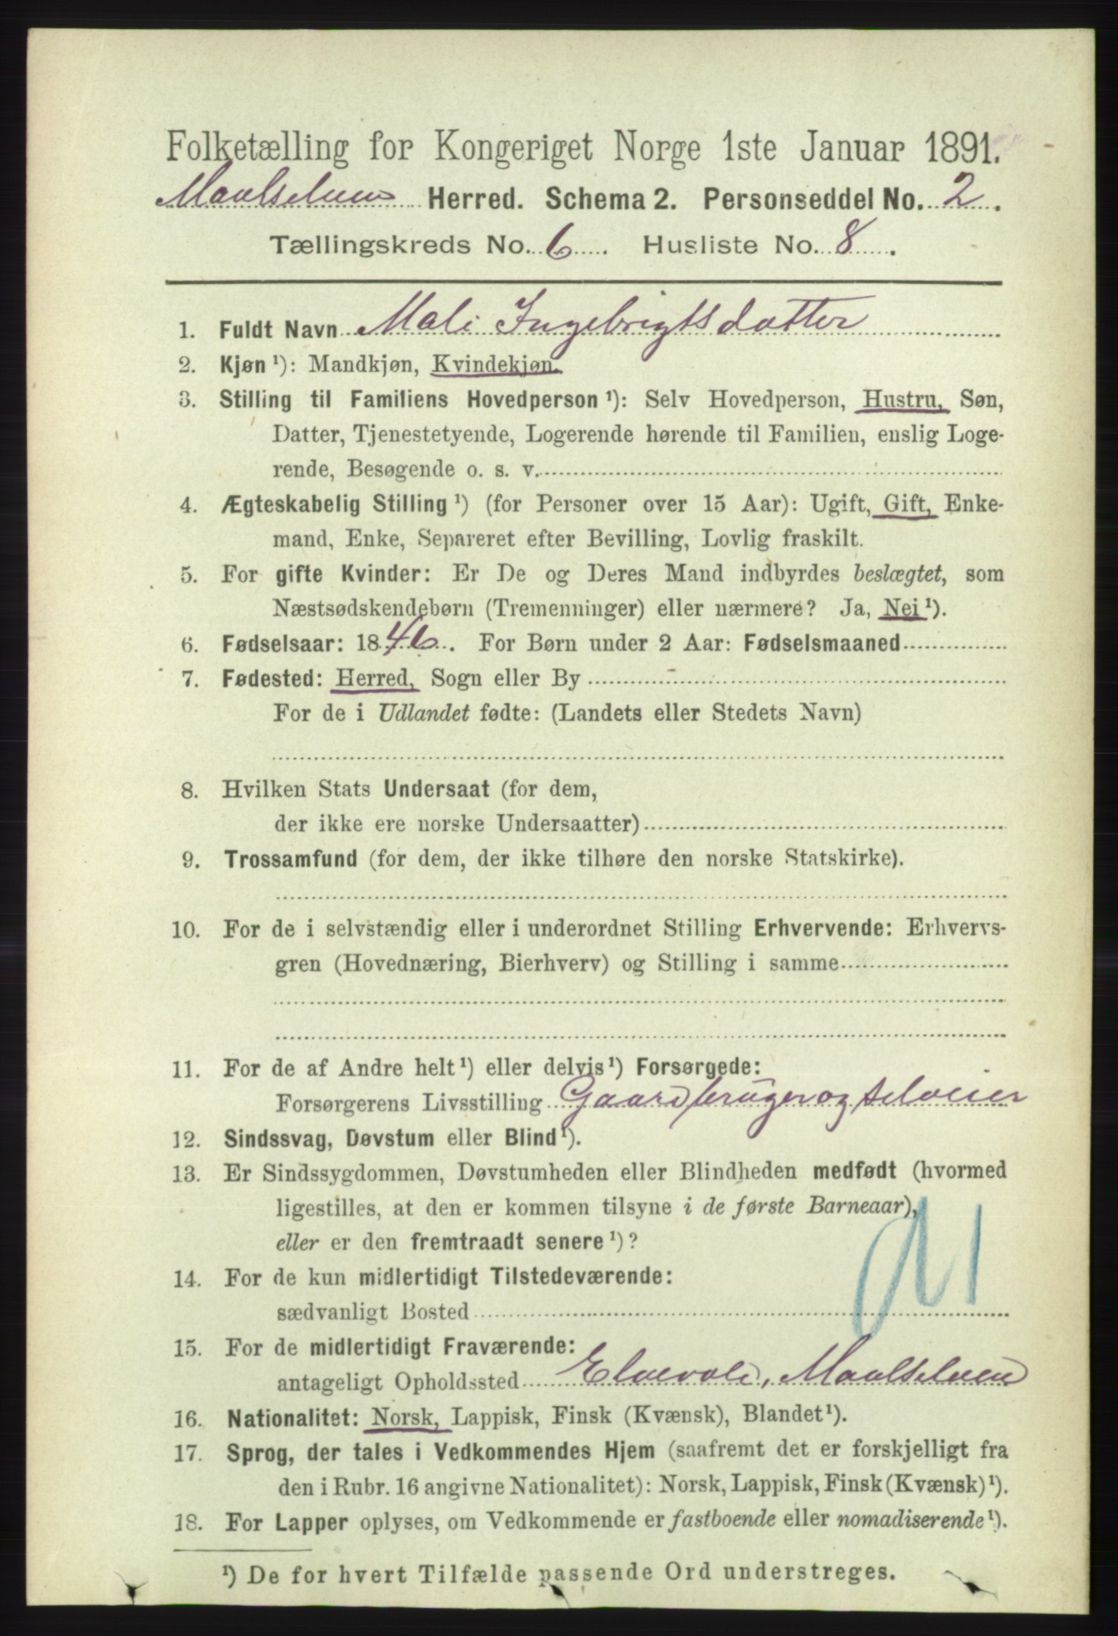 Folketælling for Kongeriget Norge 1ste Januar 1891.
Maalselven Herred. Schema 2. Personseddel No. 2.
Tællingskreds No. 6. Husliste No. 8.
1. Fuldt Navn Mali Ingebrigtsdatter
2. Kjøn ¹): Mandkjøn, Kvindekjøn.
3. Stilling til Familiens Hovedperson ¹): Selv Hovedperson, Hustru, Søn,
Datter, Tjenestetyende, Logerende hørende til Familien, enslig Loge-
rende, Besøgende o. s. v.
4. Ægteskabelig Stilling ¹) (for Personer over 15 Aar): Ugift, Gift, Enke-
mand, Enke, Separeret efter Bevilling, Lovlig fraskilt.
5. For gifte Kvinder: Er De og Deres Mand indbyrdes beslægtet, som
Næstsødskendebørn (Tremenninger) eller nærmere? Ja, Nei ¹).
6. Fødselsaar: 1846. For Børn under 2 Aar: Fødselsmaaned
7. Fødested: Herred, Sogn eller By
For de i Udlandet fødte: (Landets eller Stedets Navn)
8. Hvilken Stats Undersaat (for dem,
der ikke ere norske Undersaatter)
9. Trossamfund (for dem, der ikke tilhøre den norske Statskirke).
10. For de i selvstændig eller i underordnet Stilling Erhvervende: Erhvervs-
gren (Hovednæring, Bierhverv) og Stilling i samme
11. For de af Andre helt ¹) eller delvis ¹) Forsørgede:
Forsørgerens Livsstilling Gaardbruger og selveier
12. Sindssvag, Døvstum eller Blind ¹).
13. Er Sindssygdommen, Døvstumheden eller Blindheden medfødt (hvormed
ligestilles, at den er kommen tilsyne i de første Barneaar),
eller er den fremtraadt senere ¹)?
14. For de kun midlertidigt Tilstedeværende:
sædvanligt Bosted
15. For de midlertidigt Fraværende:
antageligt Opholdssted Elvevold, Maalselven
16. Nationalitet: Norsk, Lappisk, Finsk (Kvænsk), Blandet ¹).
17. Sprog, der tales i Vedkommendes Hjem (saafremt det er forskjelligt fra
den i Rubr. 16 angivne Nationalitet): Norsk, Lappisk, Finsk (Kvænsk) ¹).
18. For Lapper oplyses, om Vedkommende er fastboende eller nomadiserende ¹).
¹) De for hvert Tilfælde passende Ord understreges.